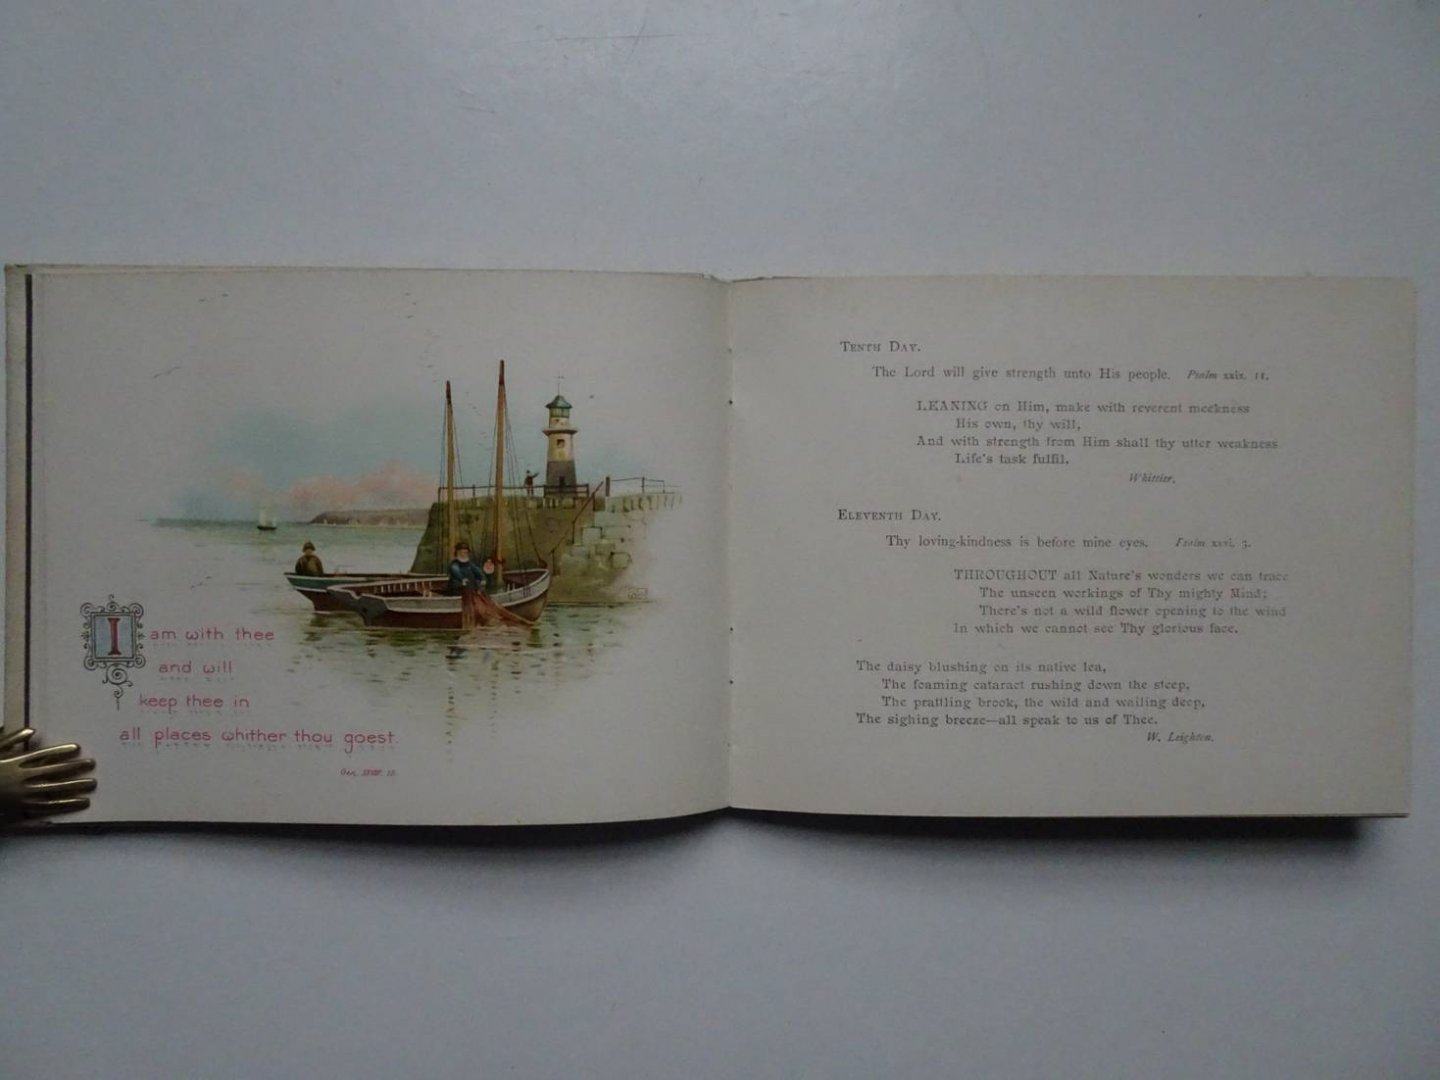 I am with thee
and will
keep thee in
all places whither thou goest.
Gen. XXVIII. 15.
TENTH DAY.
The Lord will give strength unto His people. Psalm xxix. 11.
LEANING on Him, make with reverent meekness
His own, thy will,
And with strength from Him shall thy utter weakness
Life's task fulfil.
Whittier.
ELEVENTH DAY.
Thy loving-kindness is before mine eyes. Psalm xxvi. 3.
THROUGHOUT all Nature's wonders we can trace
The unseen workings of Thy mighty Mind;
There's not a wild flower opening to the wind
In which we cannot see Thy glorious face.
The daisy blushing on its native lea,
The foaming cataract rushing down the steep,
The prattling brook, the wild and wailing deep,
The sighing breeze—all speak to us of Thee.
W. Leighton.